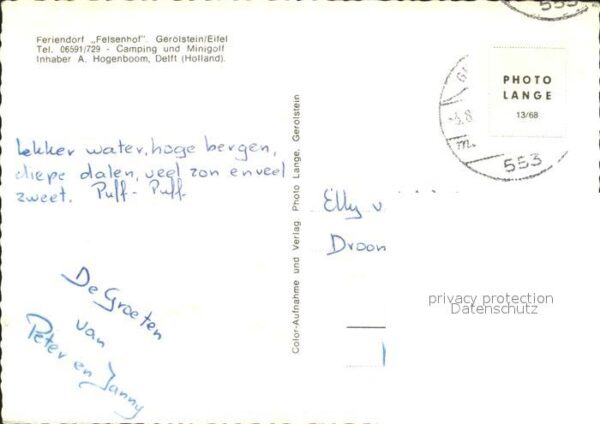 Feriendorf „Felsenhof". Gerolstein/Eifel
Tel. 06591/729 - Camping und Minigolf
Inhaber A. Hogenboom, Delft (Holland).
Lekker water, hoge bergen,
diepe dalen, veel zon en veel
zweet. Puff - Puff.
De Groeten
van
Peter en Janny
Color-Aufnahme und Verlag Photo Lange, Gerolstein
PHOTO
LANGE
13/68
553
553
Elly v
Droom
privacy protection
Datenschutz